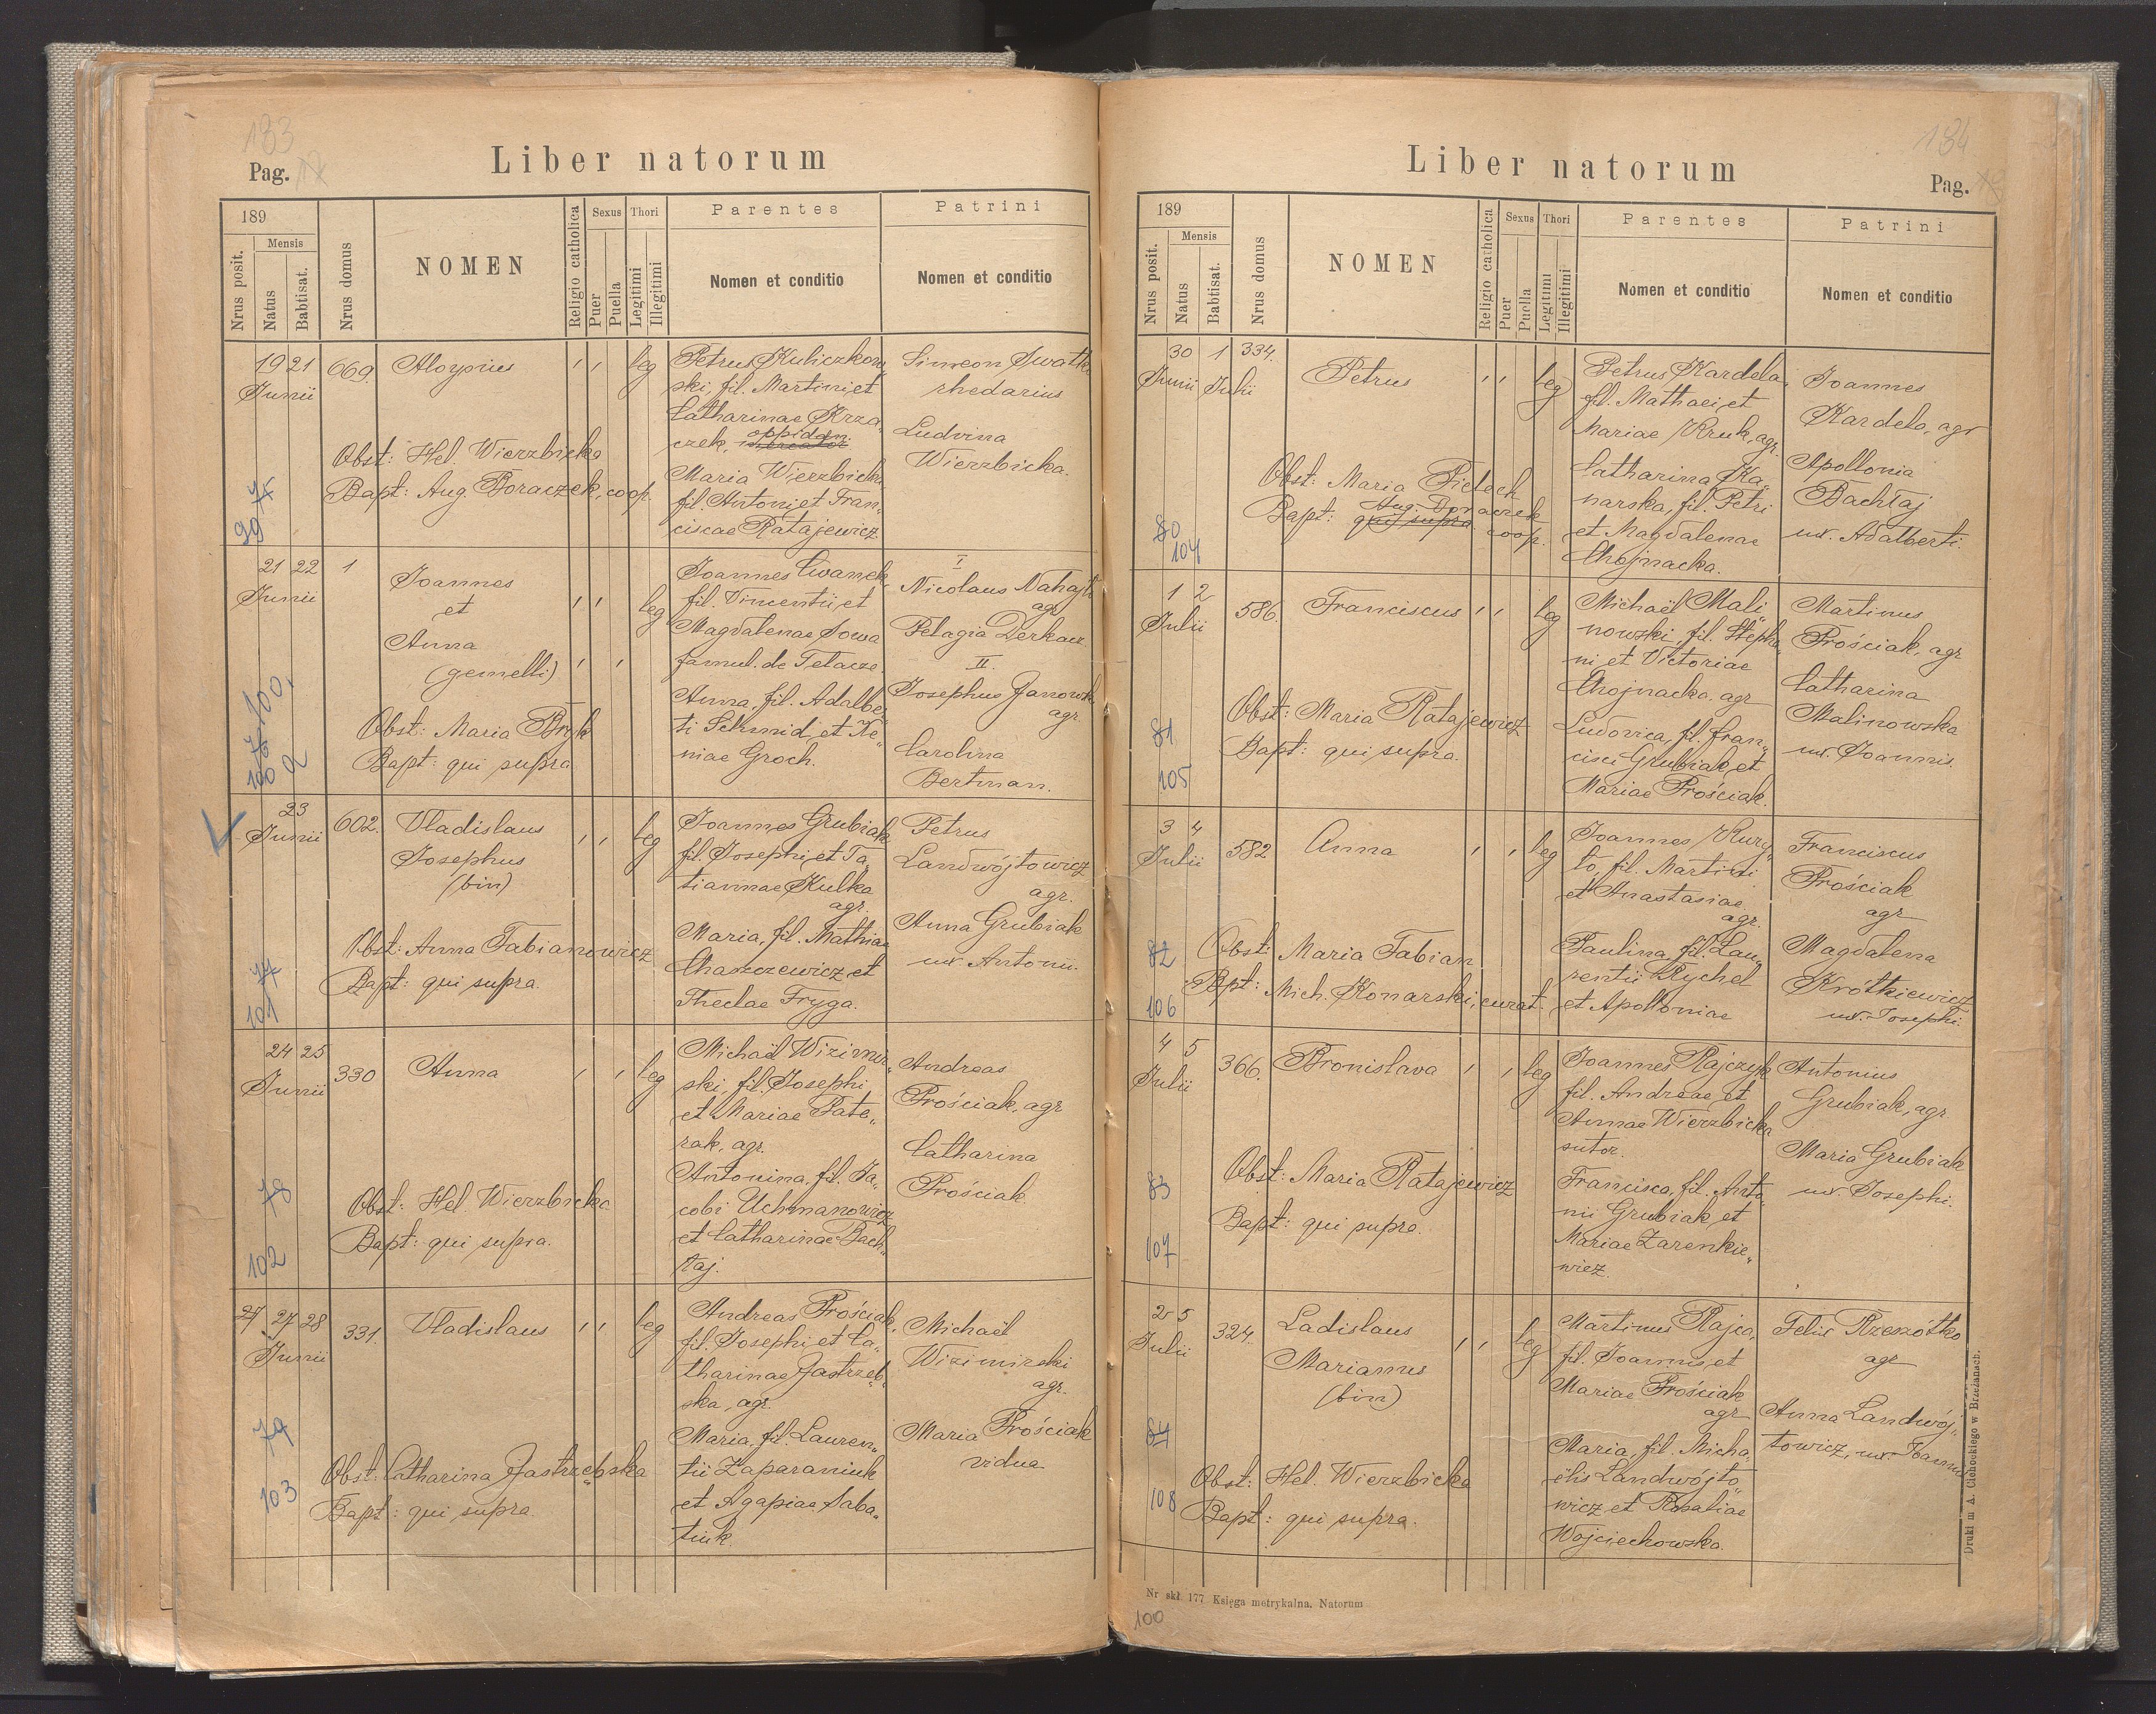 183
Pag.
Liber natorum
189
Nrus posit.
Mensis
Natus
Babtisat.
Nrus domus
NOMEN
Religio catholica
Sexus
Puer
Puella
Thori
Legitimi
Illegitimi
Parentes
Nomen et conditio
Patrini
Nomen et conditio
19 21 669. Aloysius ' ' leg
Junii
Petrus Kuliczkow„
ski, fil. Martini et
Catharinae Krza„
czek, oppidan.
Maria Wierzbicka
fil. Antoni et Fran„
ciscae Ratajewicz.
Simeon Swatko
rhedarius
Ludvina
Wierzbicka.
Obst: Hel. Wierzbicka
Bapt: Aug. Boraczek, coop.
75
99
21 22 1
Junii
Joannes
et
Anna
(gemelli)
' ' leg
' '
Joannes Cwanek,
fil. Vincentii et
Magdalenae Sowa
famul. de Telacze.
Anna, fil. Adalber„
ti Schmid, et Xe„
niae Groch.
I
Nicolaus Nahajło
agr.
Pelagia Derkacz
II.
Josephus Janowski
agr.
Carolina
Bertman.
Obst: Maria Bryk
Bapt: qui supra
76 100,
100 a
23
Junii
602. Vladislaus
Josephus
(bin)
' ' leg
Joannes Grubiak
fil. Josephi et Ta„
tiannae Kulka
agr.
Maria, fil. Mathiae
Chaszczewicz et
Theclae Fryga.
Petrus
Landwójtowicz
agr.
Anna Grubiak
ux. Antonii.
Obst: Anna Fabianowicz
Bapt: qui supra.
77
101
24 25
Junii
330 Anna ' ' leg
Michaël Wizimir„
ski, fil. Josephi
et Mariae Pate„
rak, agr.
Antonina, fil. Ja„
cobi Uchmanowicz
et Catharinae Bach„
taj.
Andreas
Prośiak, agr
Catharina
Prościak
Obst: Hel. Wierzbicka
Bapt: qui supra.
78
102
27 27 28
Junii
331. Vladislaus ' ' leg
Andreas Prościak,
fil. Josephi et Ca„
tharinae Jastrzęb„
ska, agr.
Maria, fil. Lauren„
tii Zaparaniuk
et Agapiae Saba„
tiuk.
Michaël
Wizimirski
agr.
Maria Prościak
vidua
Obst: Catharina Jastrzębska
Bapt: qui supra.
79
103
184
Liber natorum
Pag.
189
Nrus posit.
Mensis
Natus
Babtisat.
Nrus domus
NOMEN
Religio catholica
Sexus
Puer
Puella
Thori
Legitimi
Illegitimi
Parentes
Nomen et conditio
Patrini
Nomen et conditio
30 1 334.
Junii Julii
Petrus ' ' leg
Petrus Kardela,
fil. Mathaei, et
Mariae Kruk, agr.
Catharina Ka„
narska, fil. Petri
et Magdalenae
Chojnacka.
Joannes
Kardela, agr
Apollonia
Bachtaj
ux. Adalberti.
Obst: Maria Pielech
Aug. Boraczek
Bapt: qui supra coop.
80
104
1 2
Julii
586. Franciscus ' ' leg
Michaël Mali„
nowski, fil. Stepha„
ni et Victoriae
Chojnacka, agr
Ludovica, fil. Fran„
cisci Grubiak et
Mariae Prościak.
Martinus
Prościak, agr
Catharina
Malinowska
ux. Joannis.
Obst: Maria Ratajewicz
Bapt: qui supra.
81
105
3 4
Julii
582 Anna ' ' leg
Joannes Kury„
to, fil. Martini
et Anastasiae
agr.
Paulina, fil. Lau„
rentii Rychel
et Apolloniae
Franciscus
Prościak
agr
Magdalena
Krótkiewicz
ux. Josephi.
Obst: Maria Fabian
Bapt: Mich. Konarski, curat.
82
106
4 5
Julii
366. Bronislava ' ' leg
Joannes Rajczyk
fil. Andreae et
Annae Wierzbicka
sutor.
Francisca, fil. Anto„
nii Grubiak, et
Mariae Zarenkie„
wicz.
Antonius
Grubiak, agr
Maria Grubiak
ux. Josephi.
Obst: Maria Ratajewicz
Bapt: qui supra.
83
107
2 5
Julii
324. Ladislaus
Marianus
(bin)
' ' leg
Martinus Rajca,
fil. Joannis, et
Mariae Prościak
agr
Maria, fil. Micha„
ëlis Landwójto„
wicz et Rosaliae
Wojciechowska.
Felix Rzeszótko
agr
Anna Landwój„
towicz, ux. Joannis
Obst: Hel. Wierzbicka
Bapt: qui supra.
84
108
Druki m A. Cichockiego w Brzeżanach.
Nr skł 177 Księga metrykalna. Natorum
100